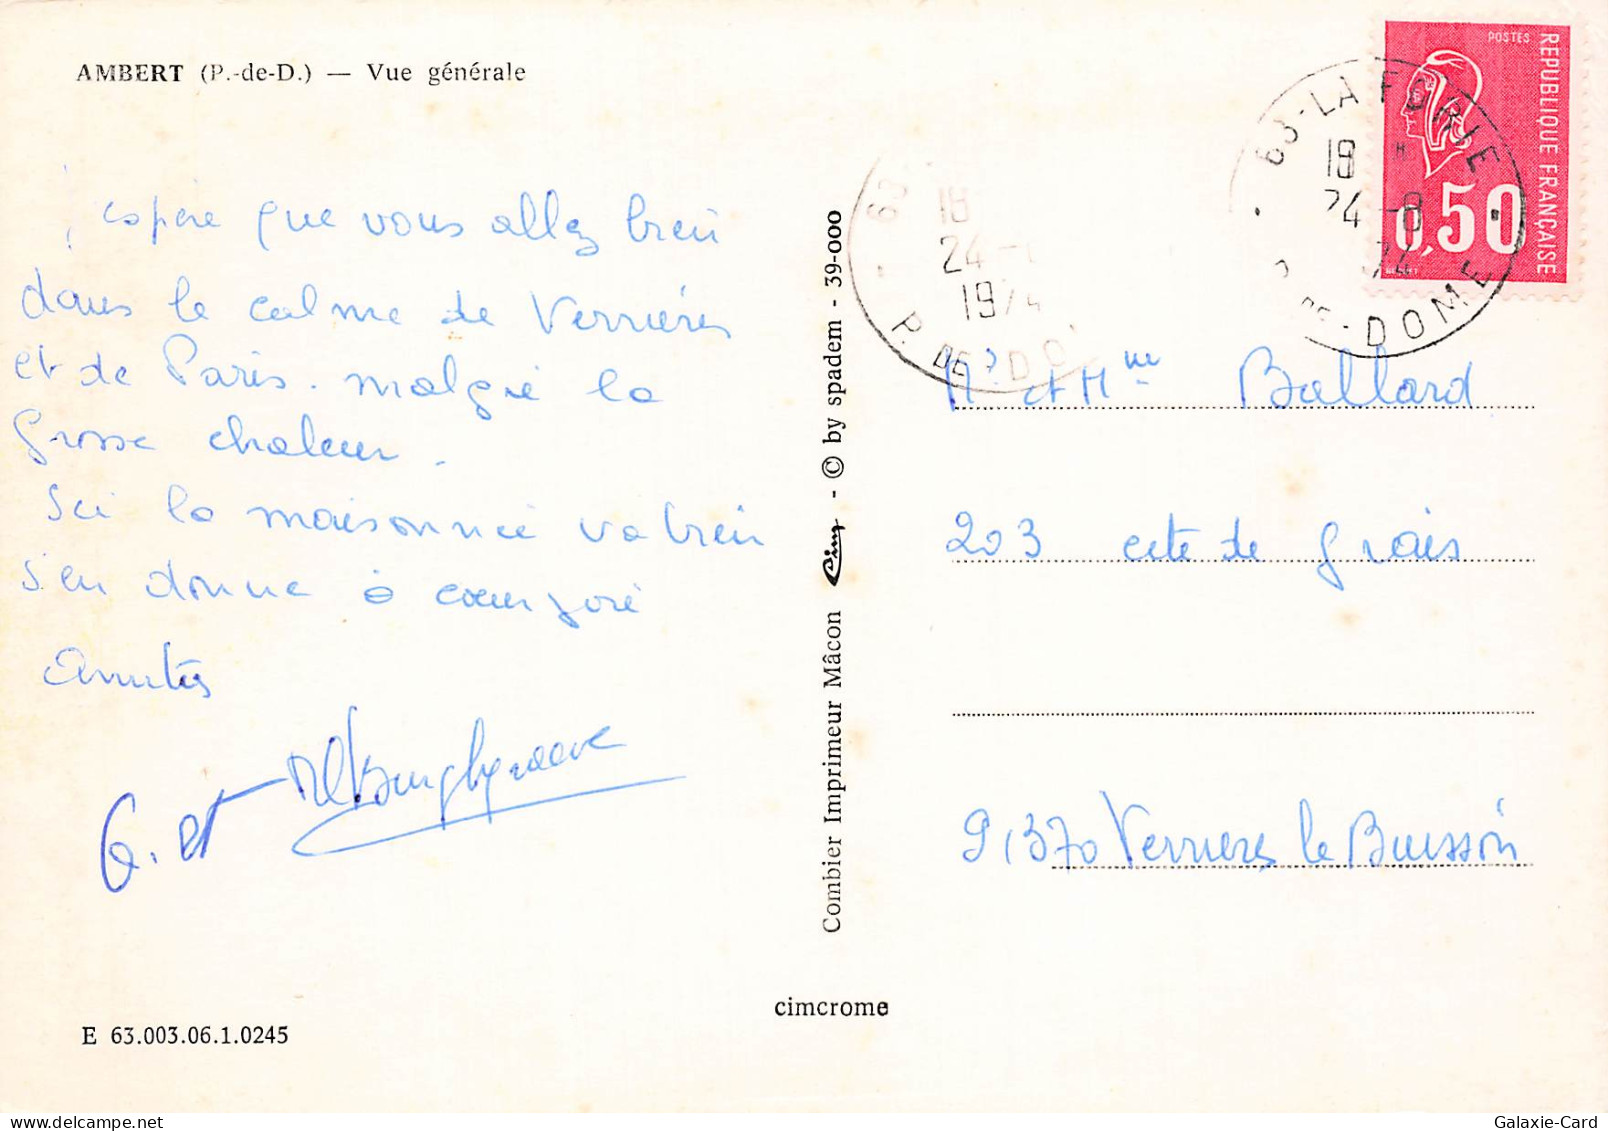 AMBERT (P.-de-D.) — Vue générale
j'espère que vous allez bien
dans le calme de Verrières
et de Paris. malgré la
grosse chaleur.
Ici la maisonnée va bien
s'en donne à coeur joie
Amitiés
G. et
Combier Imprimeur Mâcon Cim - © by spadem - 39-000
cimcrome
E 63.003.06.1.0245
POSTES
REPUBLIQUE FRANÇAISE
0,50
63-LA FORIE
18 H
24-8
74
P. DE-DOME
63
18
24-
1974
P. DE-DO
Mr et Mme Ballard
203 cité de grais
91370 Verrieres le Buisson
Galaxie-Card